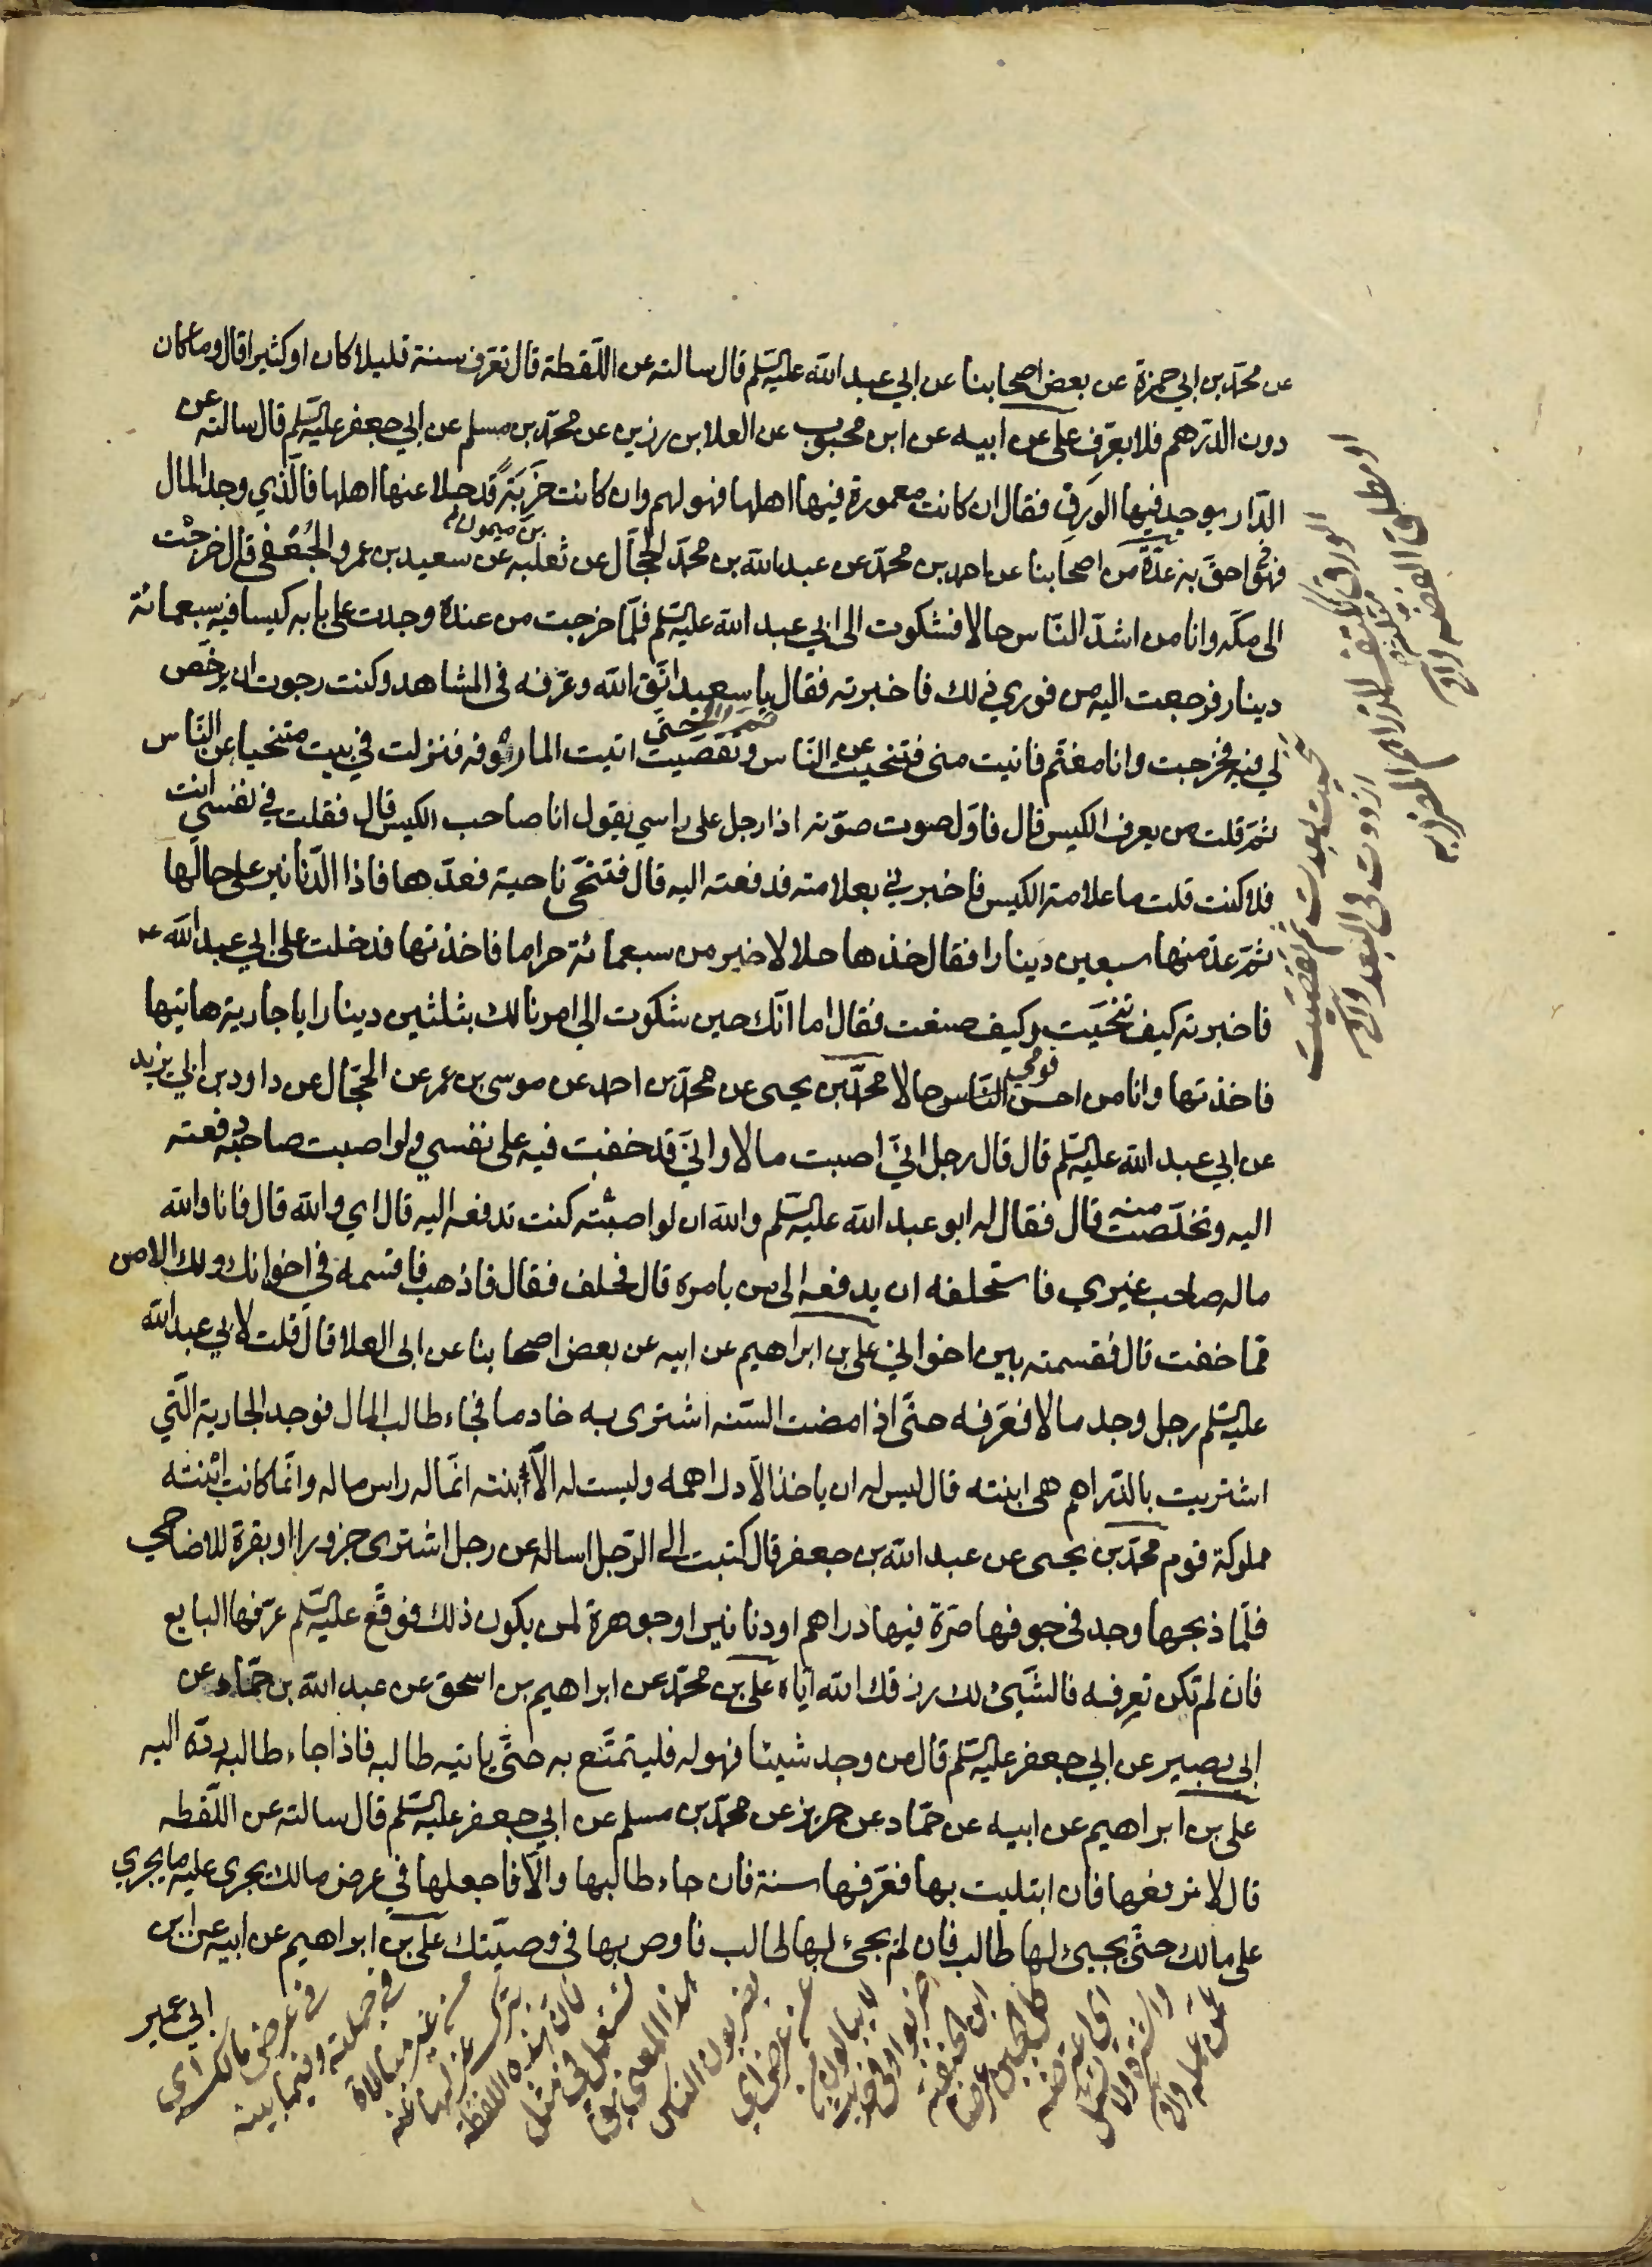 عن محمد بن ابي حمزة عن بعض اصحابنا عن ابي عبد الله عليه السلم قال سالته عن اللقطة قال تعرف سنة قليلا كان او كثيرا قال وما كان
دون الدرهم فلا يعرف علي عن ابيه عن ابن محبوب عن العلا بن رزين عن محمد بن مسلم عن ابي جعفر عليه السلم قال سالته عن
الدار يوجد فيها الورق فقال ان كانت معمورة فيها اهلها فهو لهم وان كانت خربة قد جلا عنها اهلها فالذي وجد المال
فهو احق به عدة من اصحابنا عن احمد بن محمد عن عبد الله بن محمد الحجال عن ثعلبه بن ميمون عن سعيد بن عمرو الجعفي قال خرجت
الى مكه وانا من اشد الناس حالا فشكوت الى ابي عبد الله عليه السلم فلما خرجت من عنده وجدت على بابه كيسا فيه سبعمائة
دينار فرجعت اليه من فوري ذلك فاخبرته فقال يا سعيد اتق الله وعرفه في المشاهد وكنت رجوت ان يرخص
لي فيه فخرجت وانا مغتم فاتيت منى فتنحيت عن الناس وتقصيت حتى اتيت الماروفه فنزلت في بيت متنحيا عن الناس
ثم قلت من يعرف الكيس قال فاول صوت صوته اذا رجل على راسي يقول انا صاحب الكيس قال فقلت في نفسي انت
فلا كنت قلت ما علامة الكيس فاخبرني بعلامته فدفعته اليه قال فتنحى ناحية فعدها فاذا الدنانير على حالها
ثم عد منها سبعين دينارا فقال خذها حلالا خير من سبعمائة حراما فاخذتها فدخلت على ابي عبد الله ع
فاخبرته كيف تنحيت وكيف صنعت فقال اما انك حين شكوت الي امرنا لك بثلثين دينارا يا جارية هاتيها
فاخذتها وانا من احسن قومي حالا محمد بن يحيى عن محمد بن احمد عن موسى بن عمر عن الحجال عن داود بن ابي يزيد
عن ابي عبد الله عليه السلم قال قال رجل اني اصبت مالا واني قد خفت فيه على نفسي ولو اصبت صاحبه دفعته
اليه وتخلصت منه قال فقال له ابو عبد الله عليه السلم والله ان لو اصبته كنت تدفعه اليه قال اي والله قال فانا والله
ماله صاحب غيري فاستحلفه ان يدفعه الى من يامره قال فحلف فقال فاذهب فاقسمه في اخوانك ولك الامن
مما خفت قال فقسمته بين اخواني علي بن ابراهيم عن ابيه عن بعض اصحابنا عن ابي العلا قال قلت لابي عبد الله
عليه السلم رجل وجد مالا فعرفه حتى اذا مضت السنه اشترى به خادما فجاء طالب المال فوجد الجارية التي
اشتريت بالدراهم هي ابنته قال ليس له ان ياخذ الا دراهمه وليست له الابنته انما له راس ماله وانما كانت ابنته
مملوكة قوم محمد بن يحيى عن عبد الله بن جعفر قال كتبت الى الرجل اساله عن رجل اشترى جزورا او بقرة للاضاحي
فلما ذبحها وجد في جوفها صرة فيها دراهم او دنانير او جوهرة لمن يكون ذلك فوقع عليه السلم عرفها البايع
فان لم تكن تعرفه فالشيئ لك رزقك الله اياه علي بن محمد عن ابراهيم بن اسحق عن عبد الله بن حماد عن
ابي بصير عن ابي جعفر عليه السلم قال من وجد شيئا فهو له فليتمتع به حتى ياتيه طالبه فاذا جاء طالبه رده اليه
علي بن ابراهيم عن ابيه عن حماد عن حريز عن محمد بن مسلم عن ابي جعفر عليه السلم قال سالته عن اللقطه
قال لا ترفعها فان ابتليت بها فعرفها سنة فان جاء طالبها والا فاجعلها في عرض مالك يجرى عليه ما يجري
على مالك حتى يجيئ لها طالب فان لم يجئ لها طالب فاوص بها في وصيتك علي بن ابراهيم عن ابيه عن ابن
ابي عمير
الورق ككتف الدراهم المضروبه
او مطلق الفضه
في عرض مالك اي
في جملته وفيما بينه
من غير مبالاة